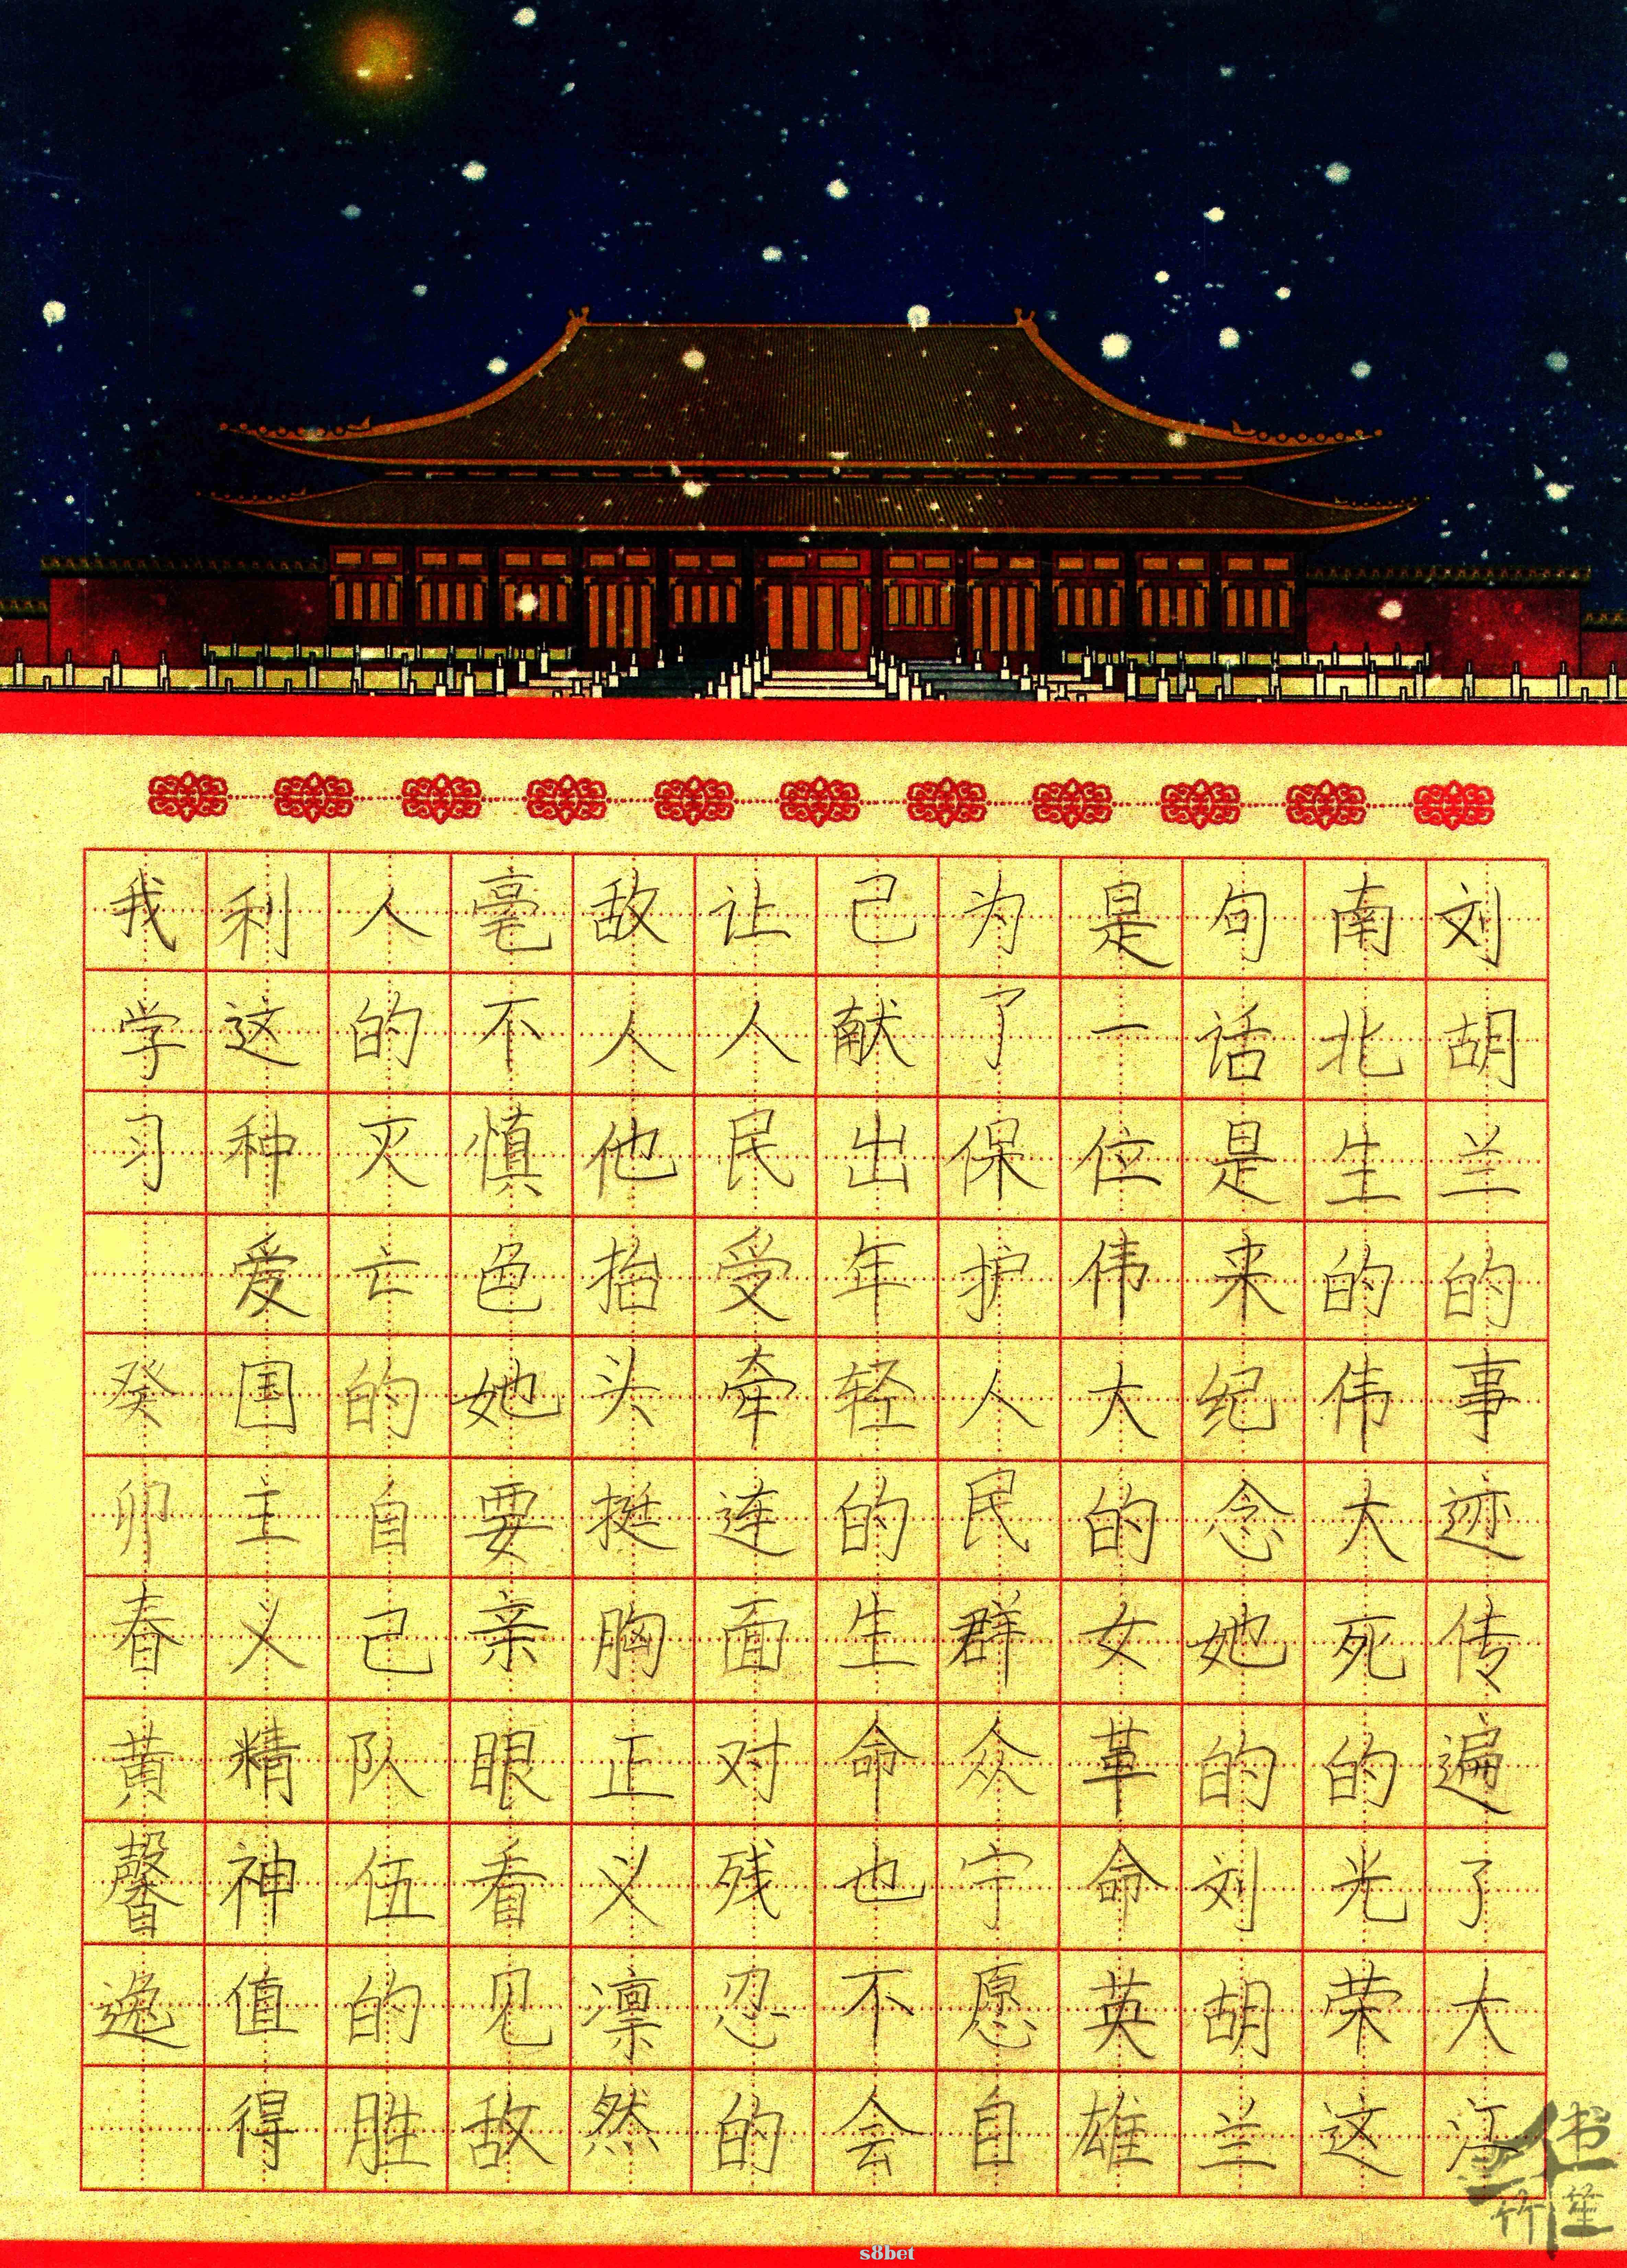 刘胡兰的事迹传遍了大江
南北生的伟大死的光荣这
句话是来纪念她的刘胡兰
是一位伟大的女革命英雄
为了保护人民群众宁愿自
己献出年轻的生命也不会
让人民受牵连面对残忍的
敌人他抬头挺胸正义凛然
毫不慎色她要亲眼看见敌
人的灭亡的自己队伍的胜
利这种爱国主义精神值得
我学习
癸卯春黄馨逸
s8bet